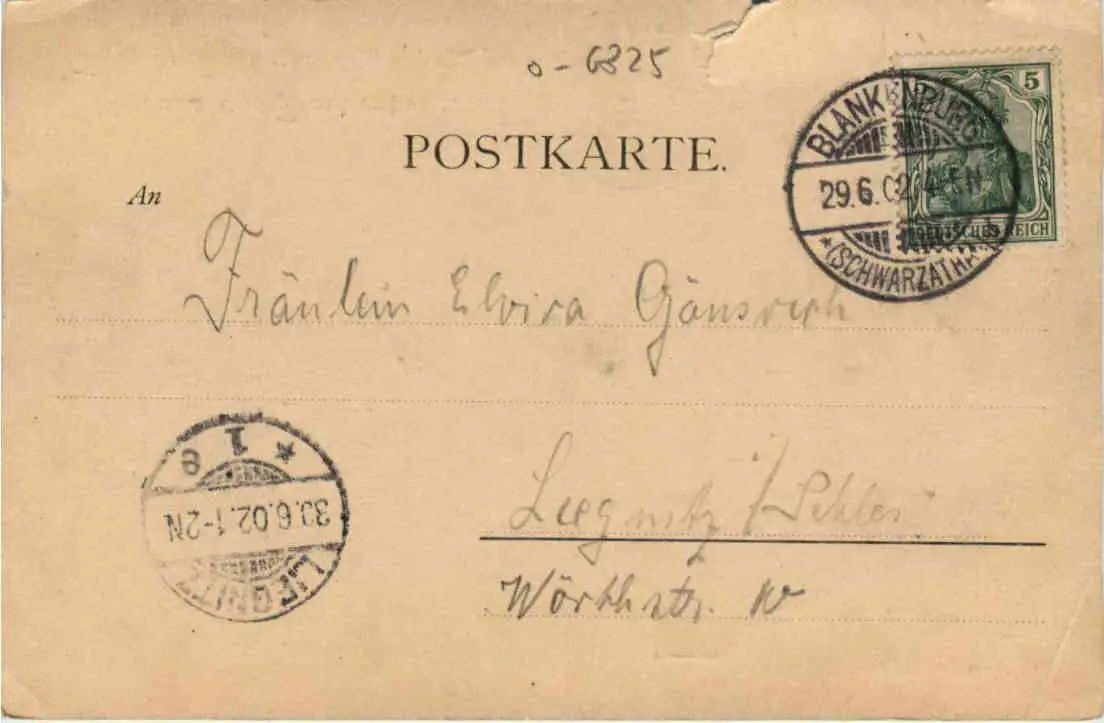 o-6825
5
BLANKENBURG
POSTKARTE.
29.6.02. 4-5N
An
DEUTSCHES REICH
*(SCHWARZATHAL)*
Fräulein Elvira
* 1 e
Liegnitz i/Schles
30.6.02. 1-2N
LIEGNITZ
Wörthstr.